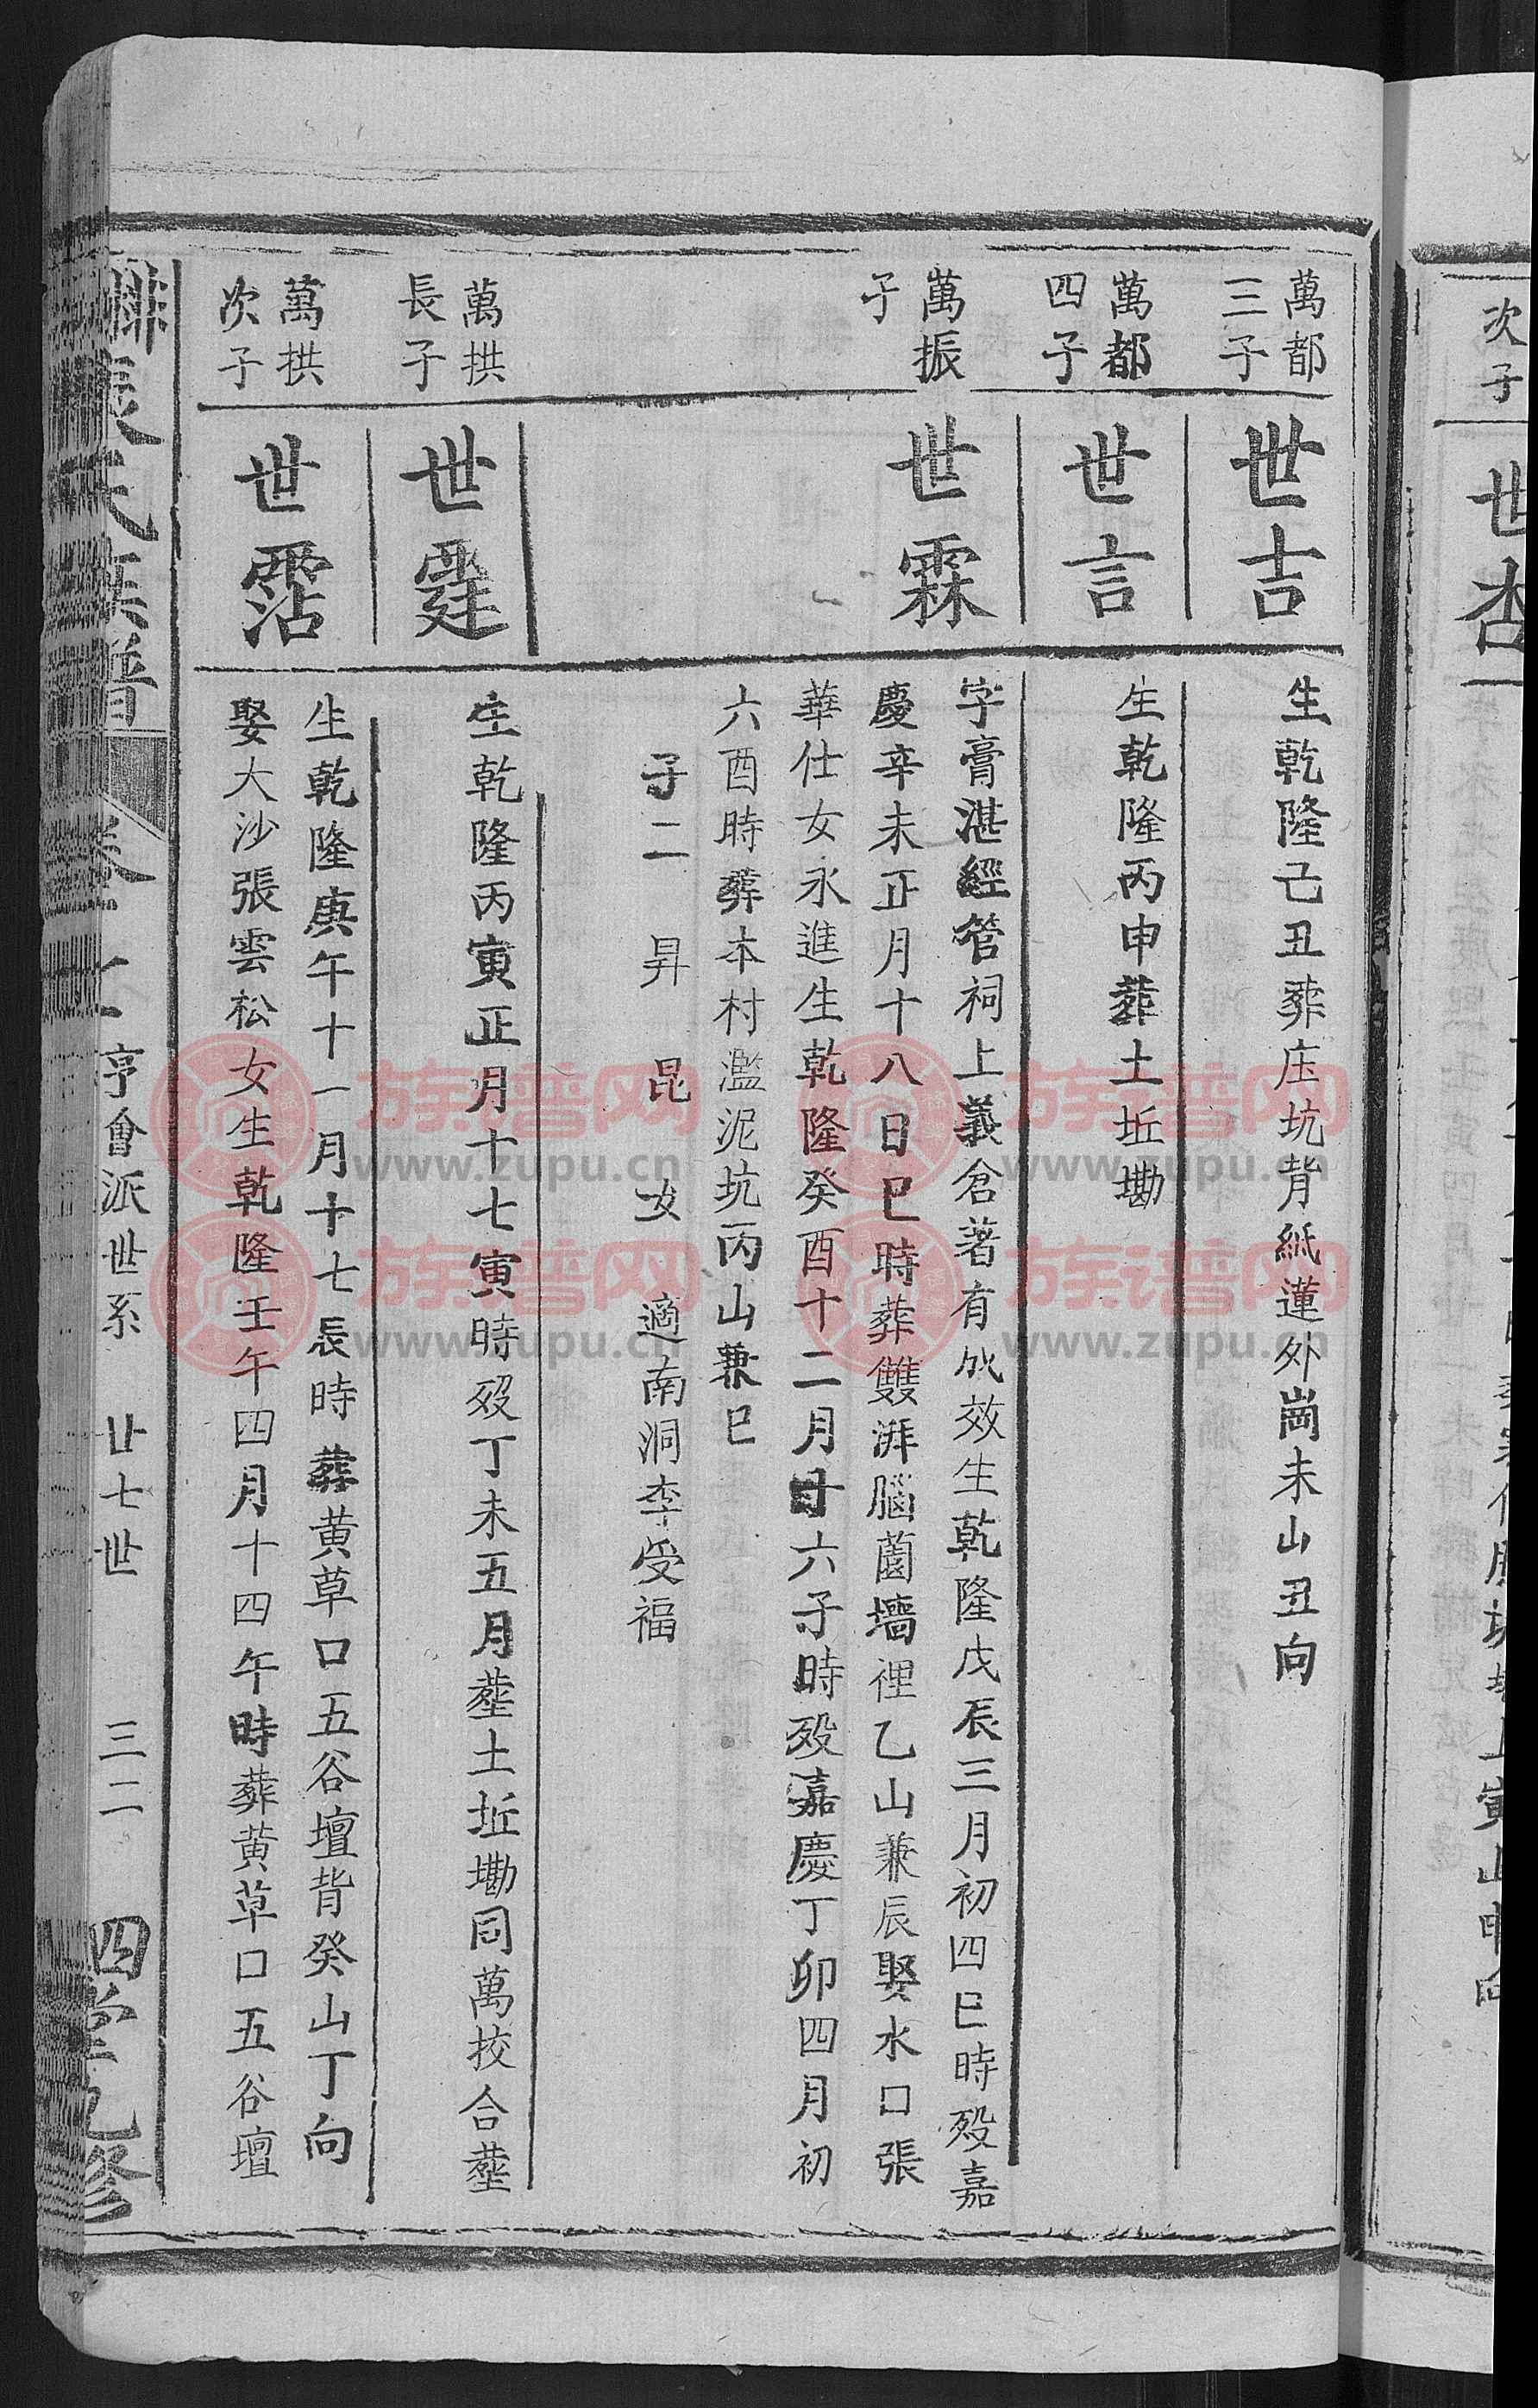 萬都
三子
世吉
生乾隆己丑葬庄坑背紙蓮外崗未山丑向
萬都
四子
世言
生乾隆丙申葬土坵墈
萬振
子
世霖
字膏湛經管祠上義倉著有成效生乾隆戊辰三月初四巳時歿嘉
慶辛未正月十八日巳時葬雙湃腦薗墻裡乙山兼辰娶水口張
華仕女永進生乾隆癸酉十二月十六子時歿嘉慶丁卯四月初
六酉時葬本村濫泥坑丙山兼巳
子二 昇 昆 女 適南洞李受福
萬拱
長子
世霆
生乾隆丙寅正月十七寅時歿丁未五月塟土坵墈同萬挍合塟
萬拱
次子
世霑
生乾隆庚午十一月十七辰時葬黄草口五谷壇背癸山丁向
娶大沙張雲松女生乾隆壬午四月十四午時葬黄草口五谷壇
氏族譜
亨會派世系 廿七世 三二
四堂 修
次子
世杏
族谱网
www.zupu.cn
族谱网
www.zupu.cn
族谱网
www.zupu.cn
族谱网
www.zupu.cn